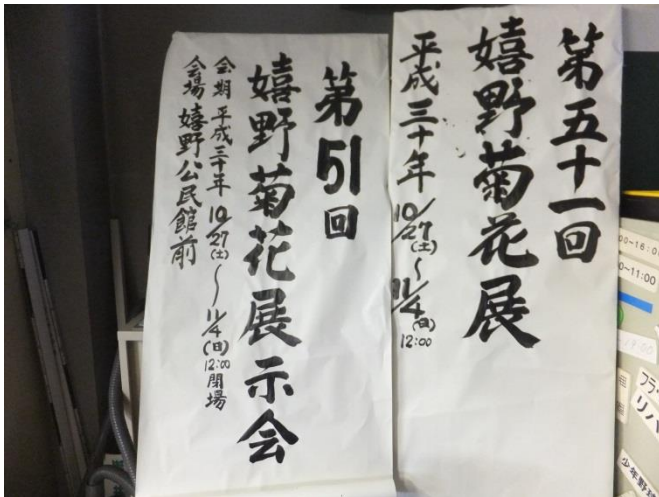 第五十一回
嬉野菊花展
平成三十年 10/27(土)〜11/4(日) 12:00
第51回
嬉野菊花展示会
会期 平成三十年 10/27(土)〜11/4(日)12:00閉場
会場 嬉野公民館前
00~16:0
0~11:00
フラ
リハ
少年野